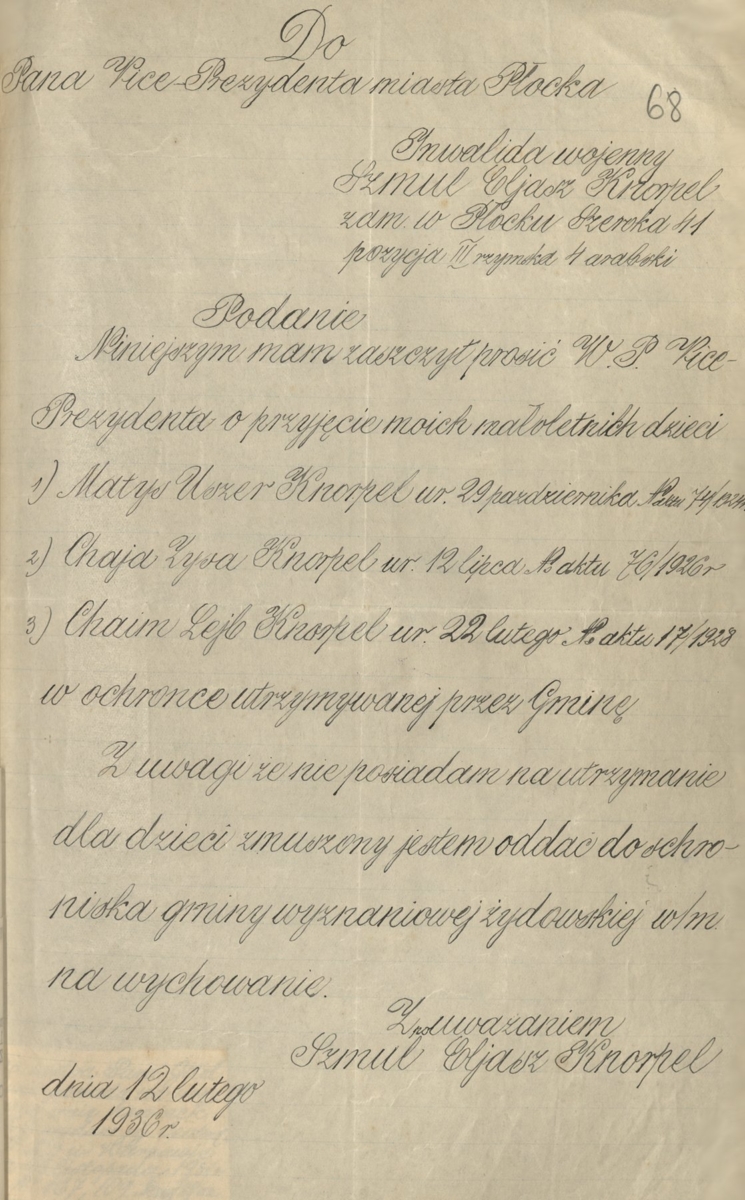 Do
Pana Vice-Prezydenta miasta Płocka
68
Inwalida wojenny
Szmul Eljasz Knorpel
zam. w Płocku Szeroka 41
pozycja III rzymska 4 arabski
Podanie
Niniejszym mam zaszczyt prosić W. P. Vice-
Prezydenta o przyjęcie moich małoletnich dzieci
1) Matys Uszer Knorpel ur. 29 pazdziernika № aktu 74/1924r.
2) Chaja Zysa Knorpel ur. 12 lipca № aktu 76/1926r
3) Chaim Lejb Knorpel ur. 22 lutego № aktu 17/1928
w ochronce utrzymywanej przez Gminę
Z uwagi ze nie posiadam na utrzymanie
dla dzieci zmuszony jestem oddać do schro-
niska gminy wyznaniowej żydowskiej w/m.
na wychowanie.
Z poważaniem
Szmul Eljasz Knorpel
dnia 12 lutego
1936r.